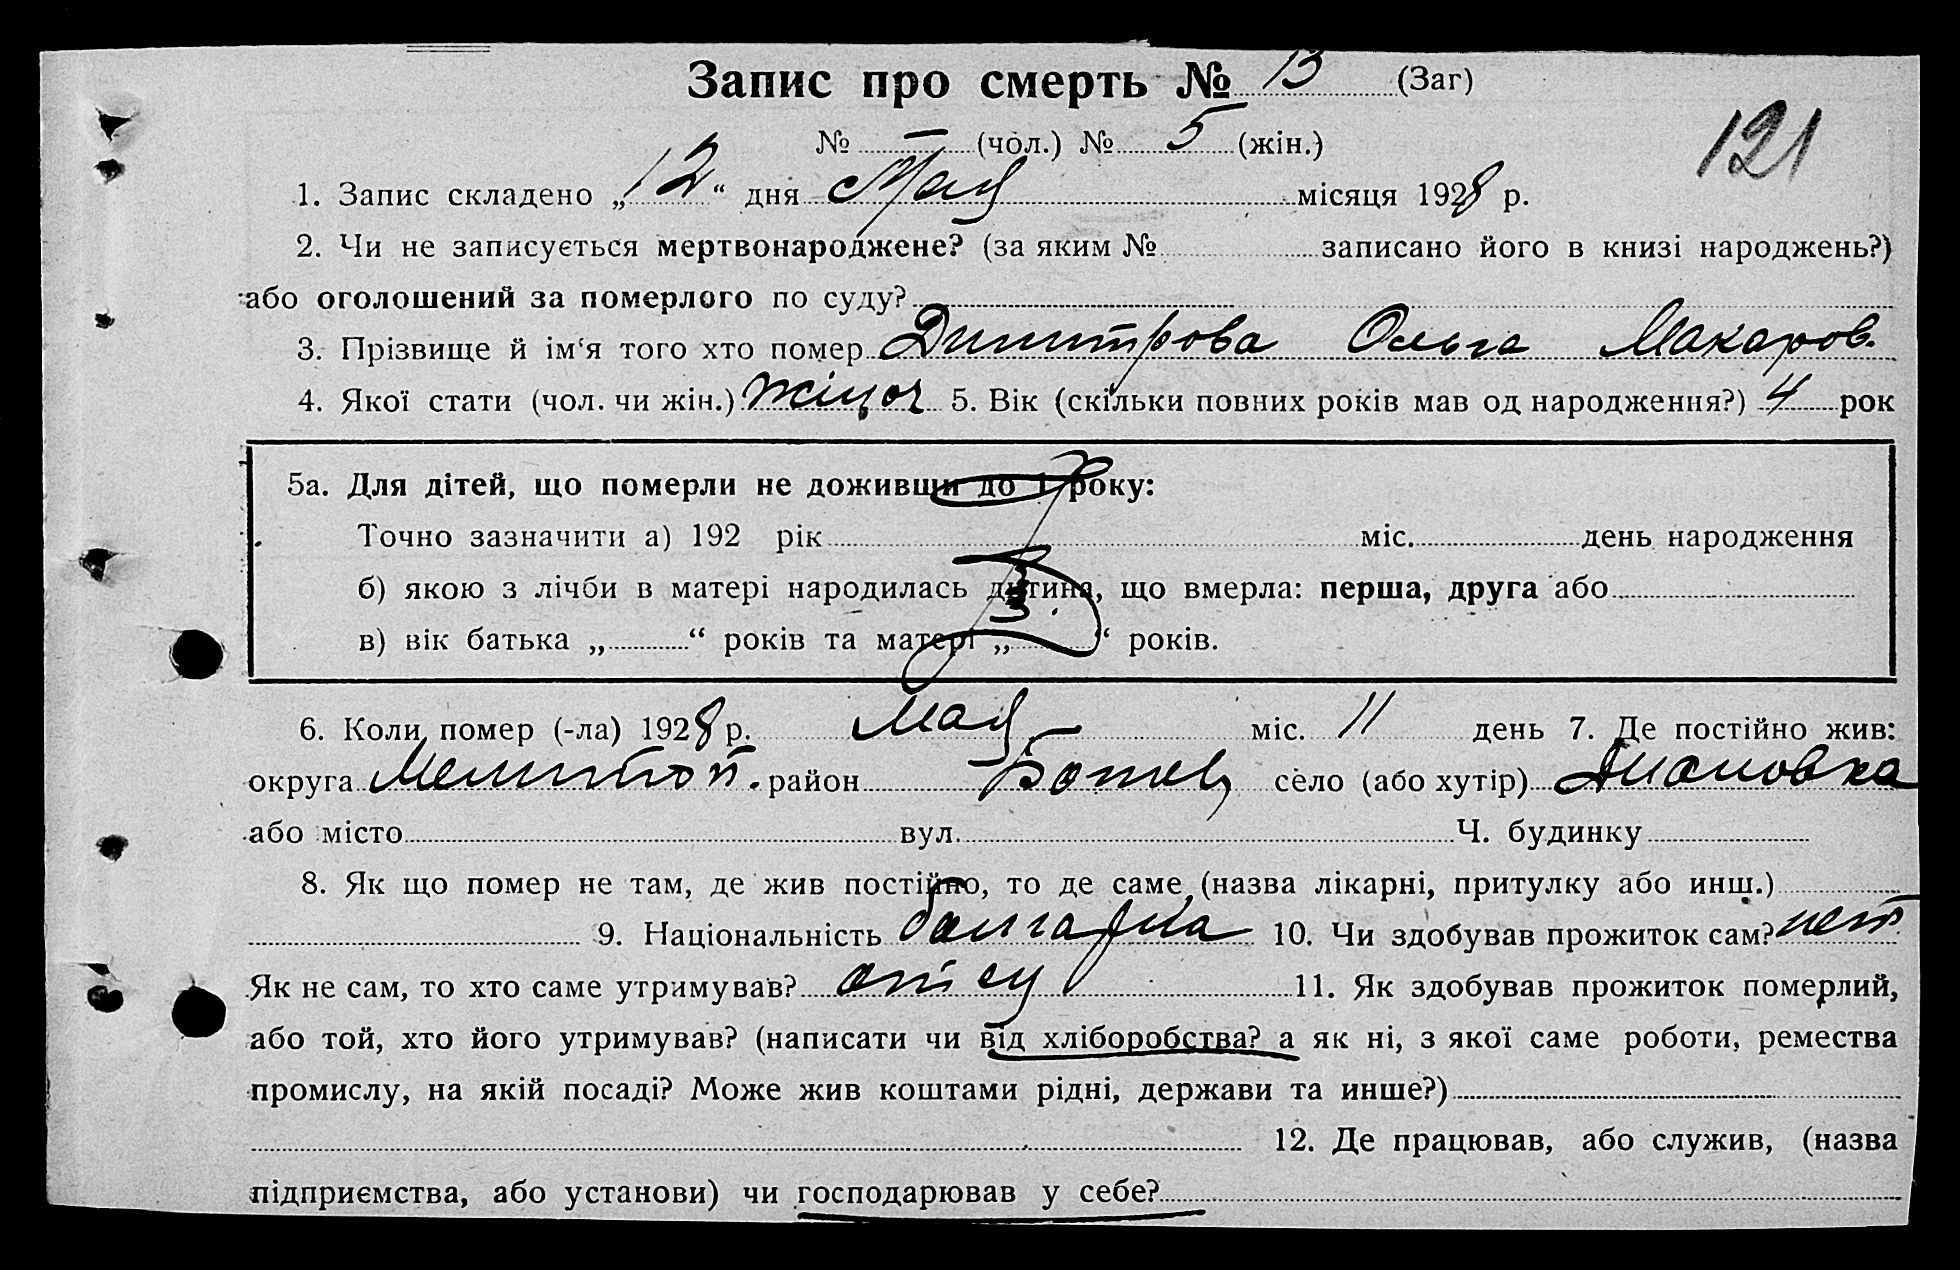 Запис про смерть № 13 (Заг)
№ — (чол.) № 5 (жін.)
121
1. Запис складено „12“ дня Мая місяця 1928 р.
2. Чи не записується мертвонароджене? (за яким № записано його в книзі народжень?)
або оголошений за померлого по суду?
3. Прізвище й ім‘я того хто помер Димитрова Ольга Макаров.
4. Якої стати (чол. чи жін.) жіноч 5. Вік (скільки повних років мав од народження?) 4 рок
5а. Для дітей, що померли не доживши до 1 року:
Точно зазначити а) 192 рік міс. день народження
б) якою з лічби в матері народилась дитина, що вмерла: перша, друга або
в) вік батька „ “ років та матері „ “ років.
6. Коли помер (-ла) 1928 р. Мая міс. 11 день 7. Де постійно жив:
округа Мелитоп. район Ботиев село (або хутір) Диановка
або місто вул. Ч. будинку
8. Як що помер не там, де жив постійно, то де саме (назва лікарні, притулку або инш.)
9. Національність болгарка 10. Чи здобував прожиток сам? нет
Як не сам, то хто саме утримував? отец 11. Як здобував прожиток померлий,
або той, хто його утримував? (написати чи від хліборобства? а як ні, з якої саме роботи, ремества
промислу, на якій посаді? Може жив коштами рідні, держави та инше?)
12. Де працював, або служив, (назва
підприємства, або установи) чи господарював у себе?